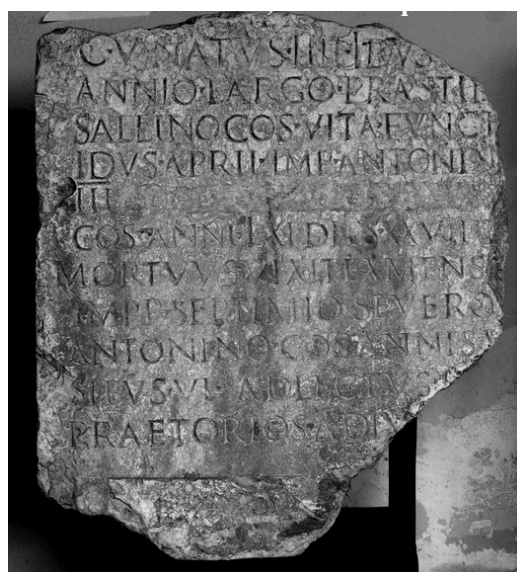 C·V·NATVS·IIII·IDVS
ANNIO·LARGO·PRAST
SALLINO COS·VITA·FVNCT
IDVS·APRIL·IMP·ANTONIN
III
COS·ANN·LXI·DIES·XXVIII
MORTVVS MENS
IMPP·SEPTIMIO·SEVERO
ANTONINO·COS·ANNIS
ADLECTVS
PRAETORIOS·